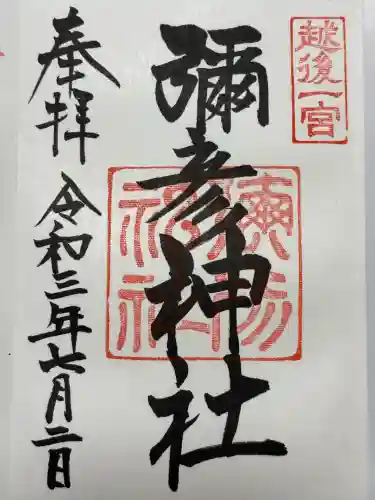 越後一宮
彌彦神社
奉拝
令和三年七月二日